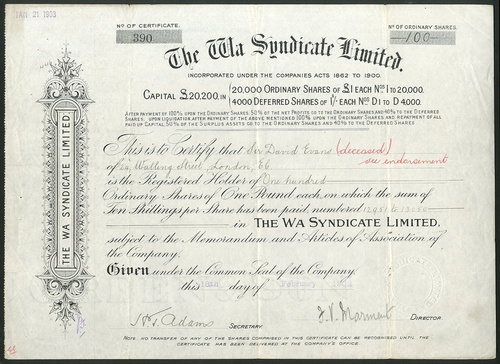 JAN 21 1903
No OF CERTIFICATE.
390
No OF ORDINARY SHARES.
—100—
The Wa Syndicate Limited.
INCORPORATED UNDER THE COMPANIES ACTS 1862 TO 1900.
CAPITAL £20,200, IN
20,000 ORDINARY SHARES OF £1 EACH Nos 1 TO 20,000.
4000 DEFERRED SHARES OF 1/- EACH Nos D1 TO D4,000.
AFTER PAYMENT OF 100% UPON THE ORDINARY SHARES 50% OF THE NET PROFITS GO TO THE ORDINARY SHARES AND 40% TO THE DEFERRED
SHARES. UPON LIQUIDATION AFTER PAYMENT OF THE ABOVE MENTIONED 100% UPON THE ORDINARY SHARES AND REPAYMENT OF ALL
PAID UP CAPITAL 50% OF THE SURPLUS ASSETS GO TO THE ORDINARY SHARES AND 40% TO THE DEFERRED SHARES
This is to Certify that Sir David Evans (deceased)
see endorsement
of 24 Watling Street, London, E.C.
is the Registered Holder of One hundred
Ordinary Shares of One Pound each, on which the sum of
Ten Shillings per Share has been paid, numbered
in THE WA SYNDICATE LIMITED,
subject to the Memorandum and Articles of Association of
the Company.
Given under the Common Seal of the Company,
this day of February
H.T. Adams
SECRETARY.
J.V. Marmont
DIRECTOR.
NOTE. NO TRANSFER OF ANY OF THE SHARES COMPRISED IN THIS CERTIFICATE CAN BE RECOGNISED UNTIL THE
CERTIFICATE HAS BEEN DELIVERED AT THE COMPANY'S OFFICE.
THE WA SYNDICATE LIMITED.